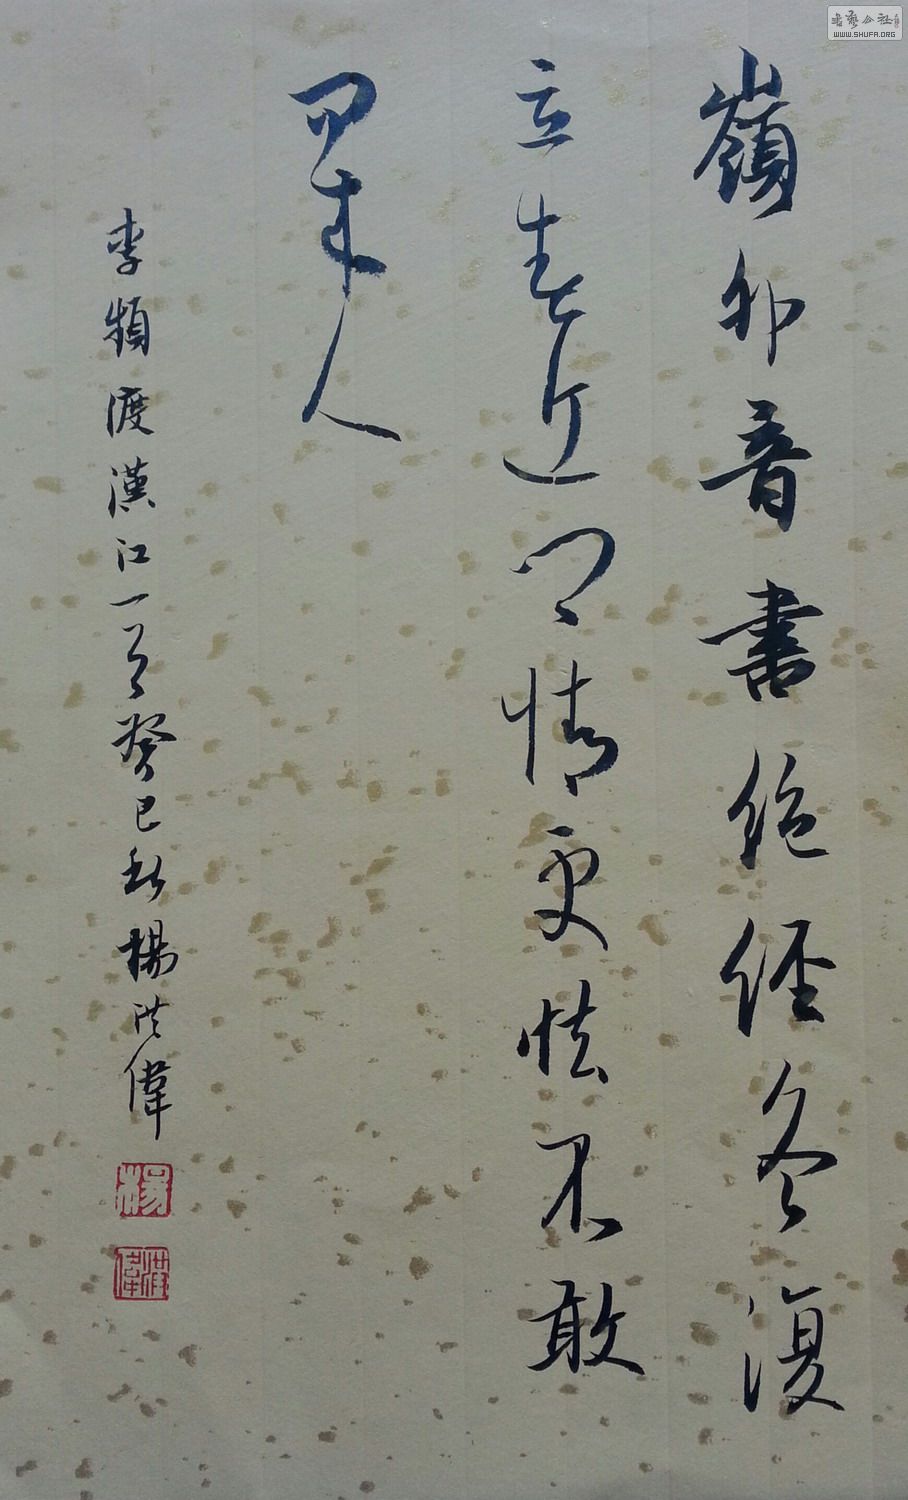 嶺外音書絶經冬復
立春近鄉情更怯不敢
問來人
李頻渡漢江一首癸巳秋楊洪偉
楊
洪偉
書藝公社
WWW.SHUFA.ORG